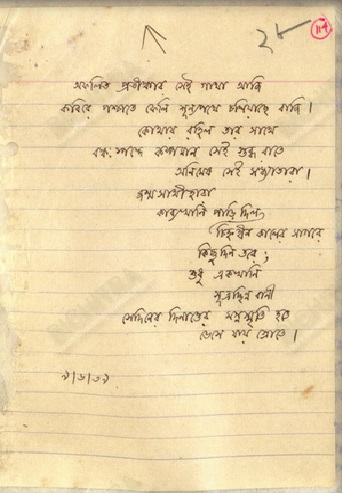 ২
114
অফলিত প্রতীক্ষার সেই গাথা আজি
কবিরে পশ্চাতে ফেলি শূন্যপথে চলিয়াছে বাজি।
কোথায় রহিল তার সাথে
বক্ষস্পন্দে কম্পমান সেই স্তব্ধ রাতে
অনিমেষ সেই সন্ধ্যাতারা।
জন্মসাথীহারা
কাব্যখানি পাড়ি দিল
চিহ্নহীন কালের সাগরে
কিছুদিন তরে;
শুধু একখানি
সূত্রছিন্ন বাণী
সেদিনের দিনান্তের মগ্নস্মৃতি হতে
ভেসে যায় স্রোতে।